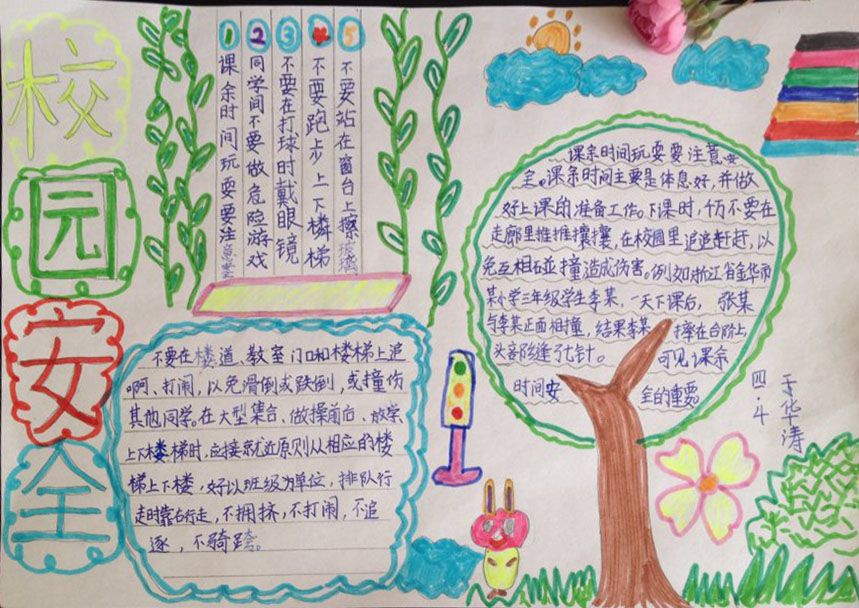 校
园
安
全
1 2 3 4 5
课余时间玩耍要注意
同学间不要做危险游戏
不要在打球时戴眼镜
不要跑步上下楼梯
不要站在窗台上擦玻璃
不要在楼道、教室门口和楼梯上追
啊、打闹，以免滑倒或跌倒，或撞伤
其他同学。在大型集合、做操前后、放学
上下楼梯时，应接就近原则从相应的楼
梯上下楼，好以班级为单位，排队行
走时靠右行走，不拥挤，不打闹，不追
逐，不骑跨。
课余时间玩耍要注意安
全。课余时间主要是体息好，并做
好上课的准备工作。下课时，千万不要在
走廊里推推攘攘，在校园里追追赶赶，以
免互相碰撞造成伤害。例如浙江省金华市
某小学三年级学生李某，一天下课后，张某
与李某正面相撞，结果李某 摔在台阶上
头部缝了七针。 可见课余
时间安 全的重要
四·4
于华涛